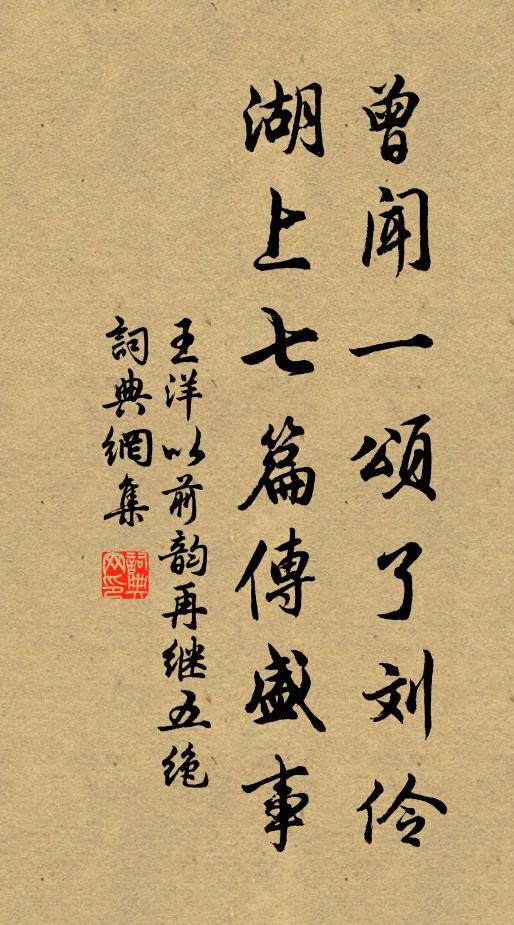 曾闻一颂了刘伶
湖上七篇傳盛事
王洋以前韵再继五绝
詞典網集
詞典
网印